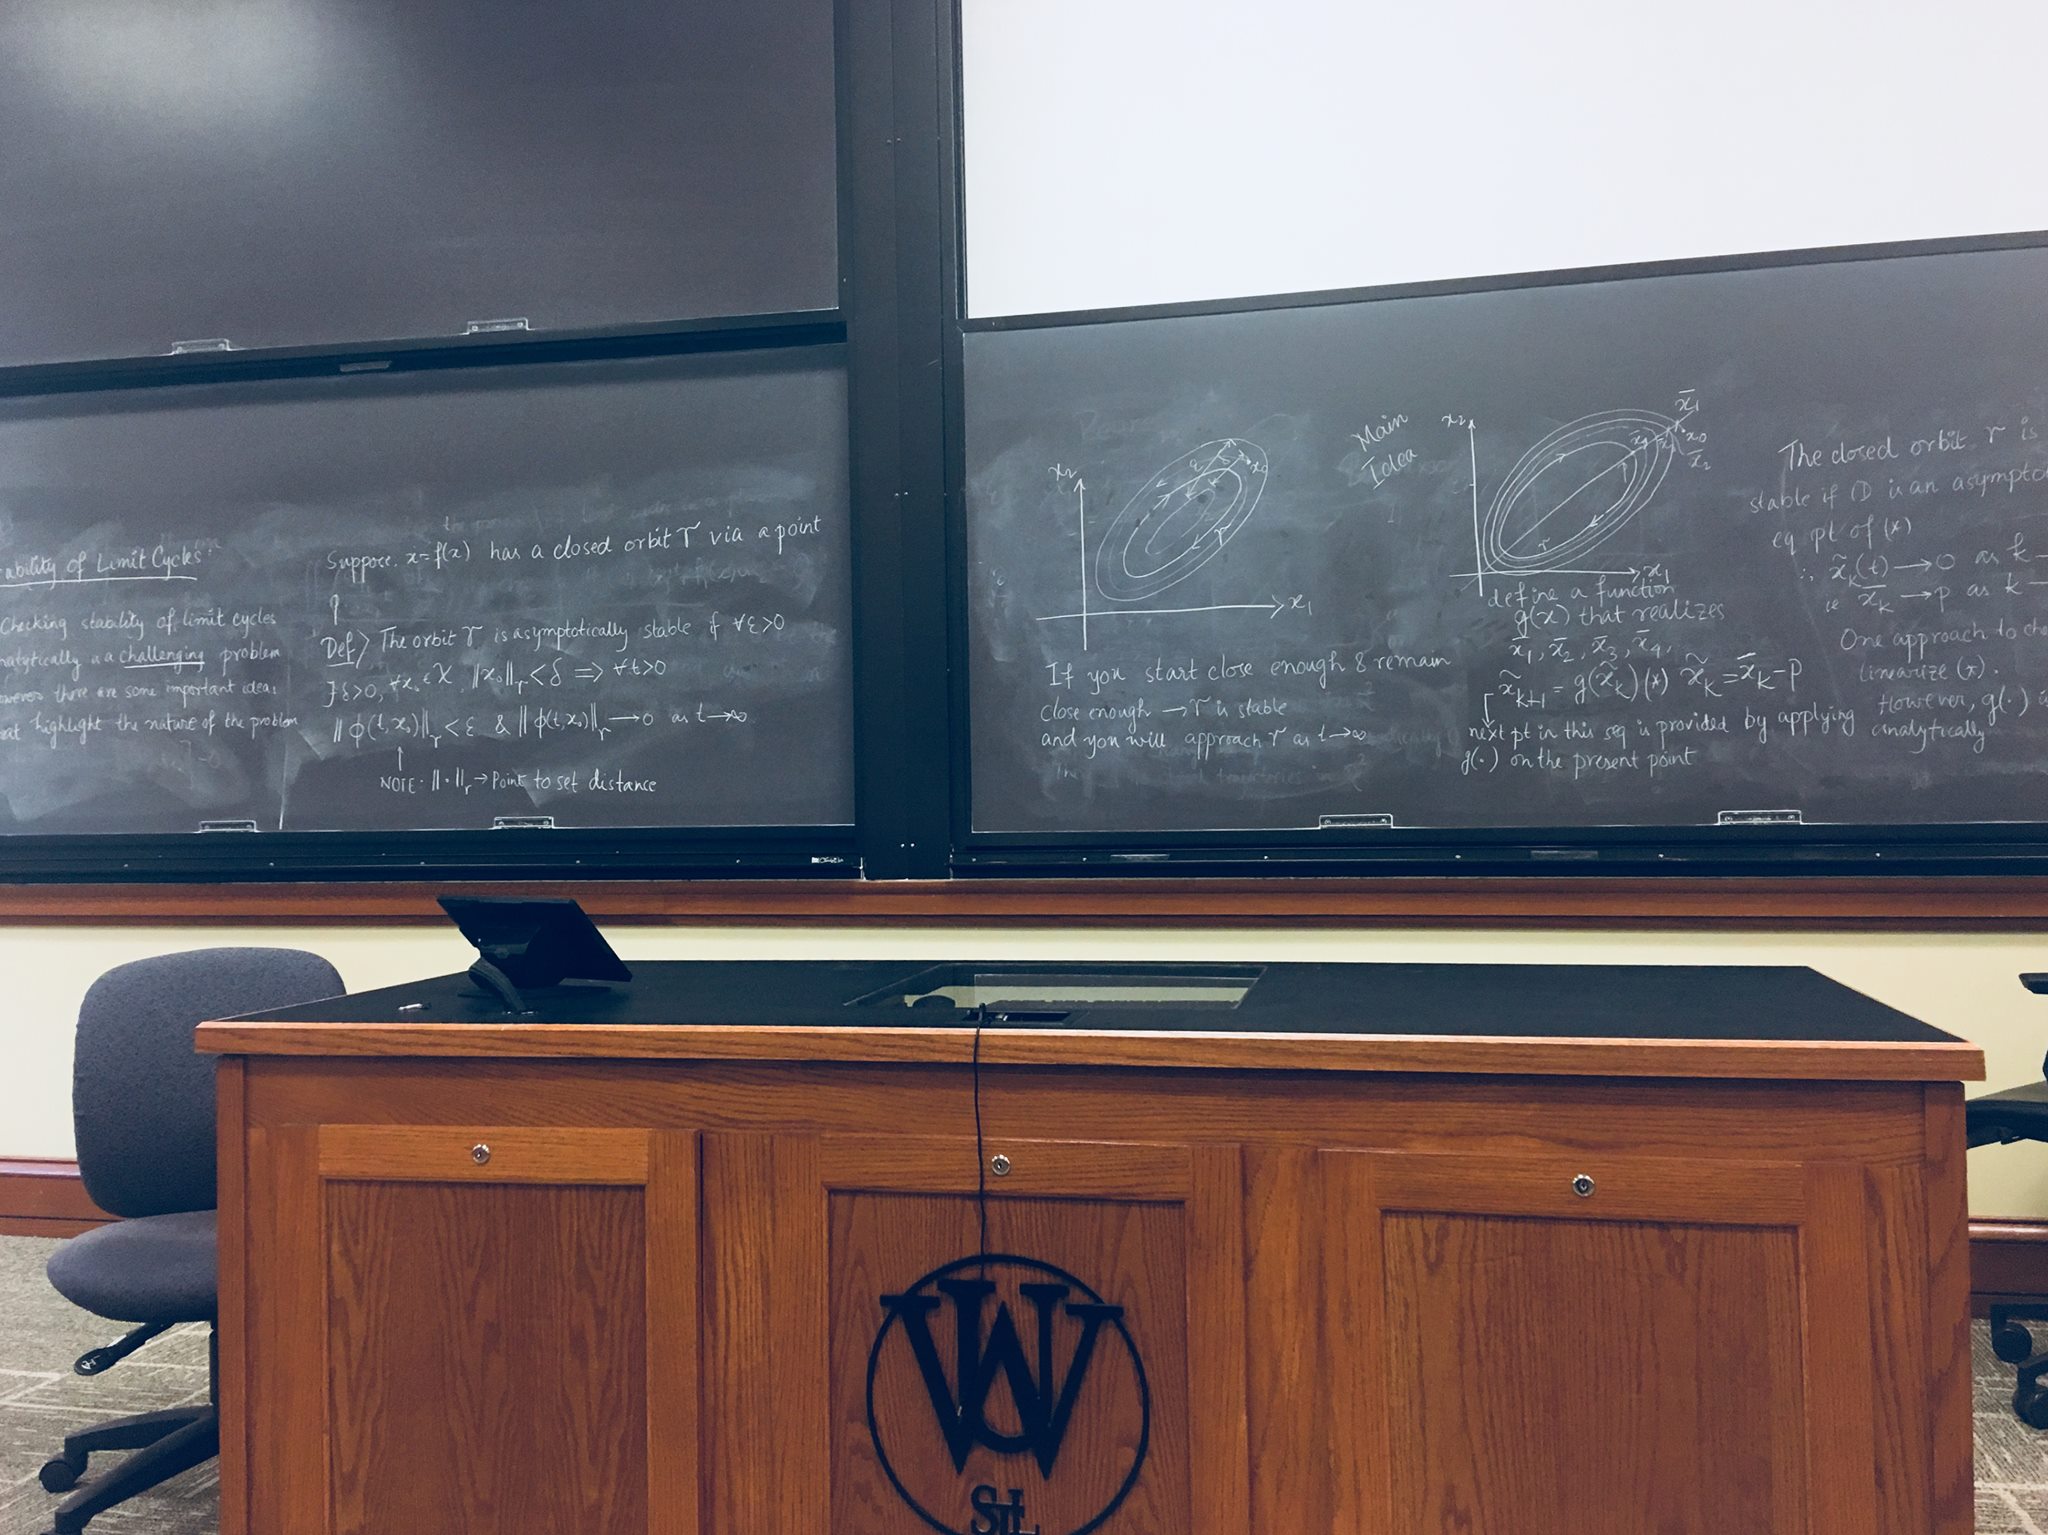 ability of Limit Cycles
Checking stability of limit cycles
analytically is a challenging problem
however there are some important ideas
that highlight the nature of the problem
Suppose. x=f(x) has a closed orbit γ via a point
p
Def> The orbit γ is asymptotically stable if ∀ε>0
∃δ>0, ∀x₀∈X, ‖x₀‖γ<δ => ∀t>0
‖ϕ(t,x₀)‖γ<ε & ‖ϕ(t,x₀)‖γ→0 as t→∞
NOTE. ‖·‖γ → Point to set distance
x₂
ε
δ
x₀
γ
x₁
If you start close enough & remain
close enough → γ is stable
and you will approach γ as t→∞
Main
Idea
x₂
x̄₁
x₀
x̄₂
γ
x₁
define a function
g(x) that realizes
x̄₁, x̄₂, x̄₃, x̄₄,
x̃ₖ₊₁ = g(x̃ₖ)(*) x̃ₖ = x̄ₖ-p
next pt in this seq is provided by applying
g(·) on the present point
The closed orbit γ is
stable if 0 is an asympto
eq pt of (*)
∴ x̃ₖ(t)→0 as k→
ie x̄ₖ→p as k→
One approach to che
linearize (*).
However, g(·) is
analytically
WU
STL